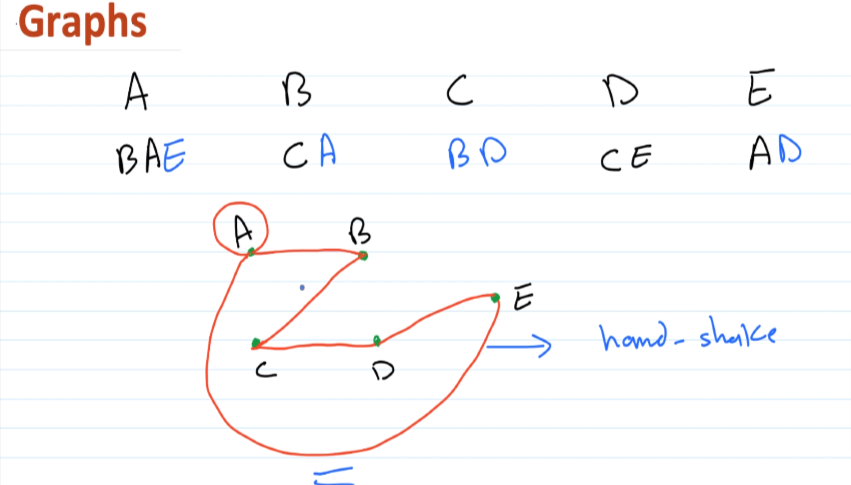 Graphs
A B C D E
BAE CA BD CE AD
A B
E
hand-shake
C D